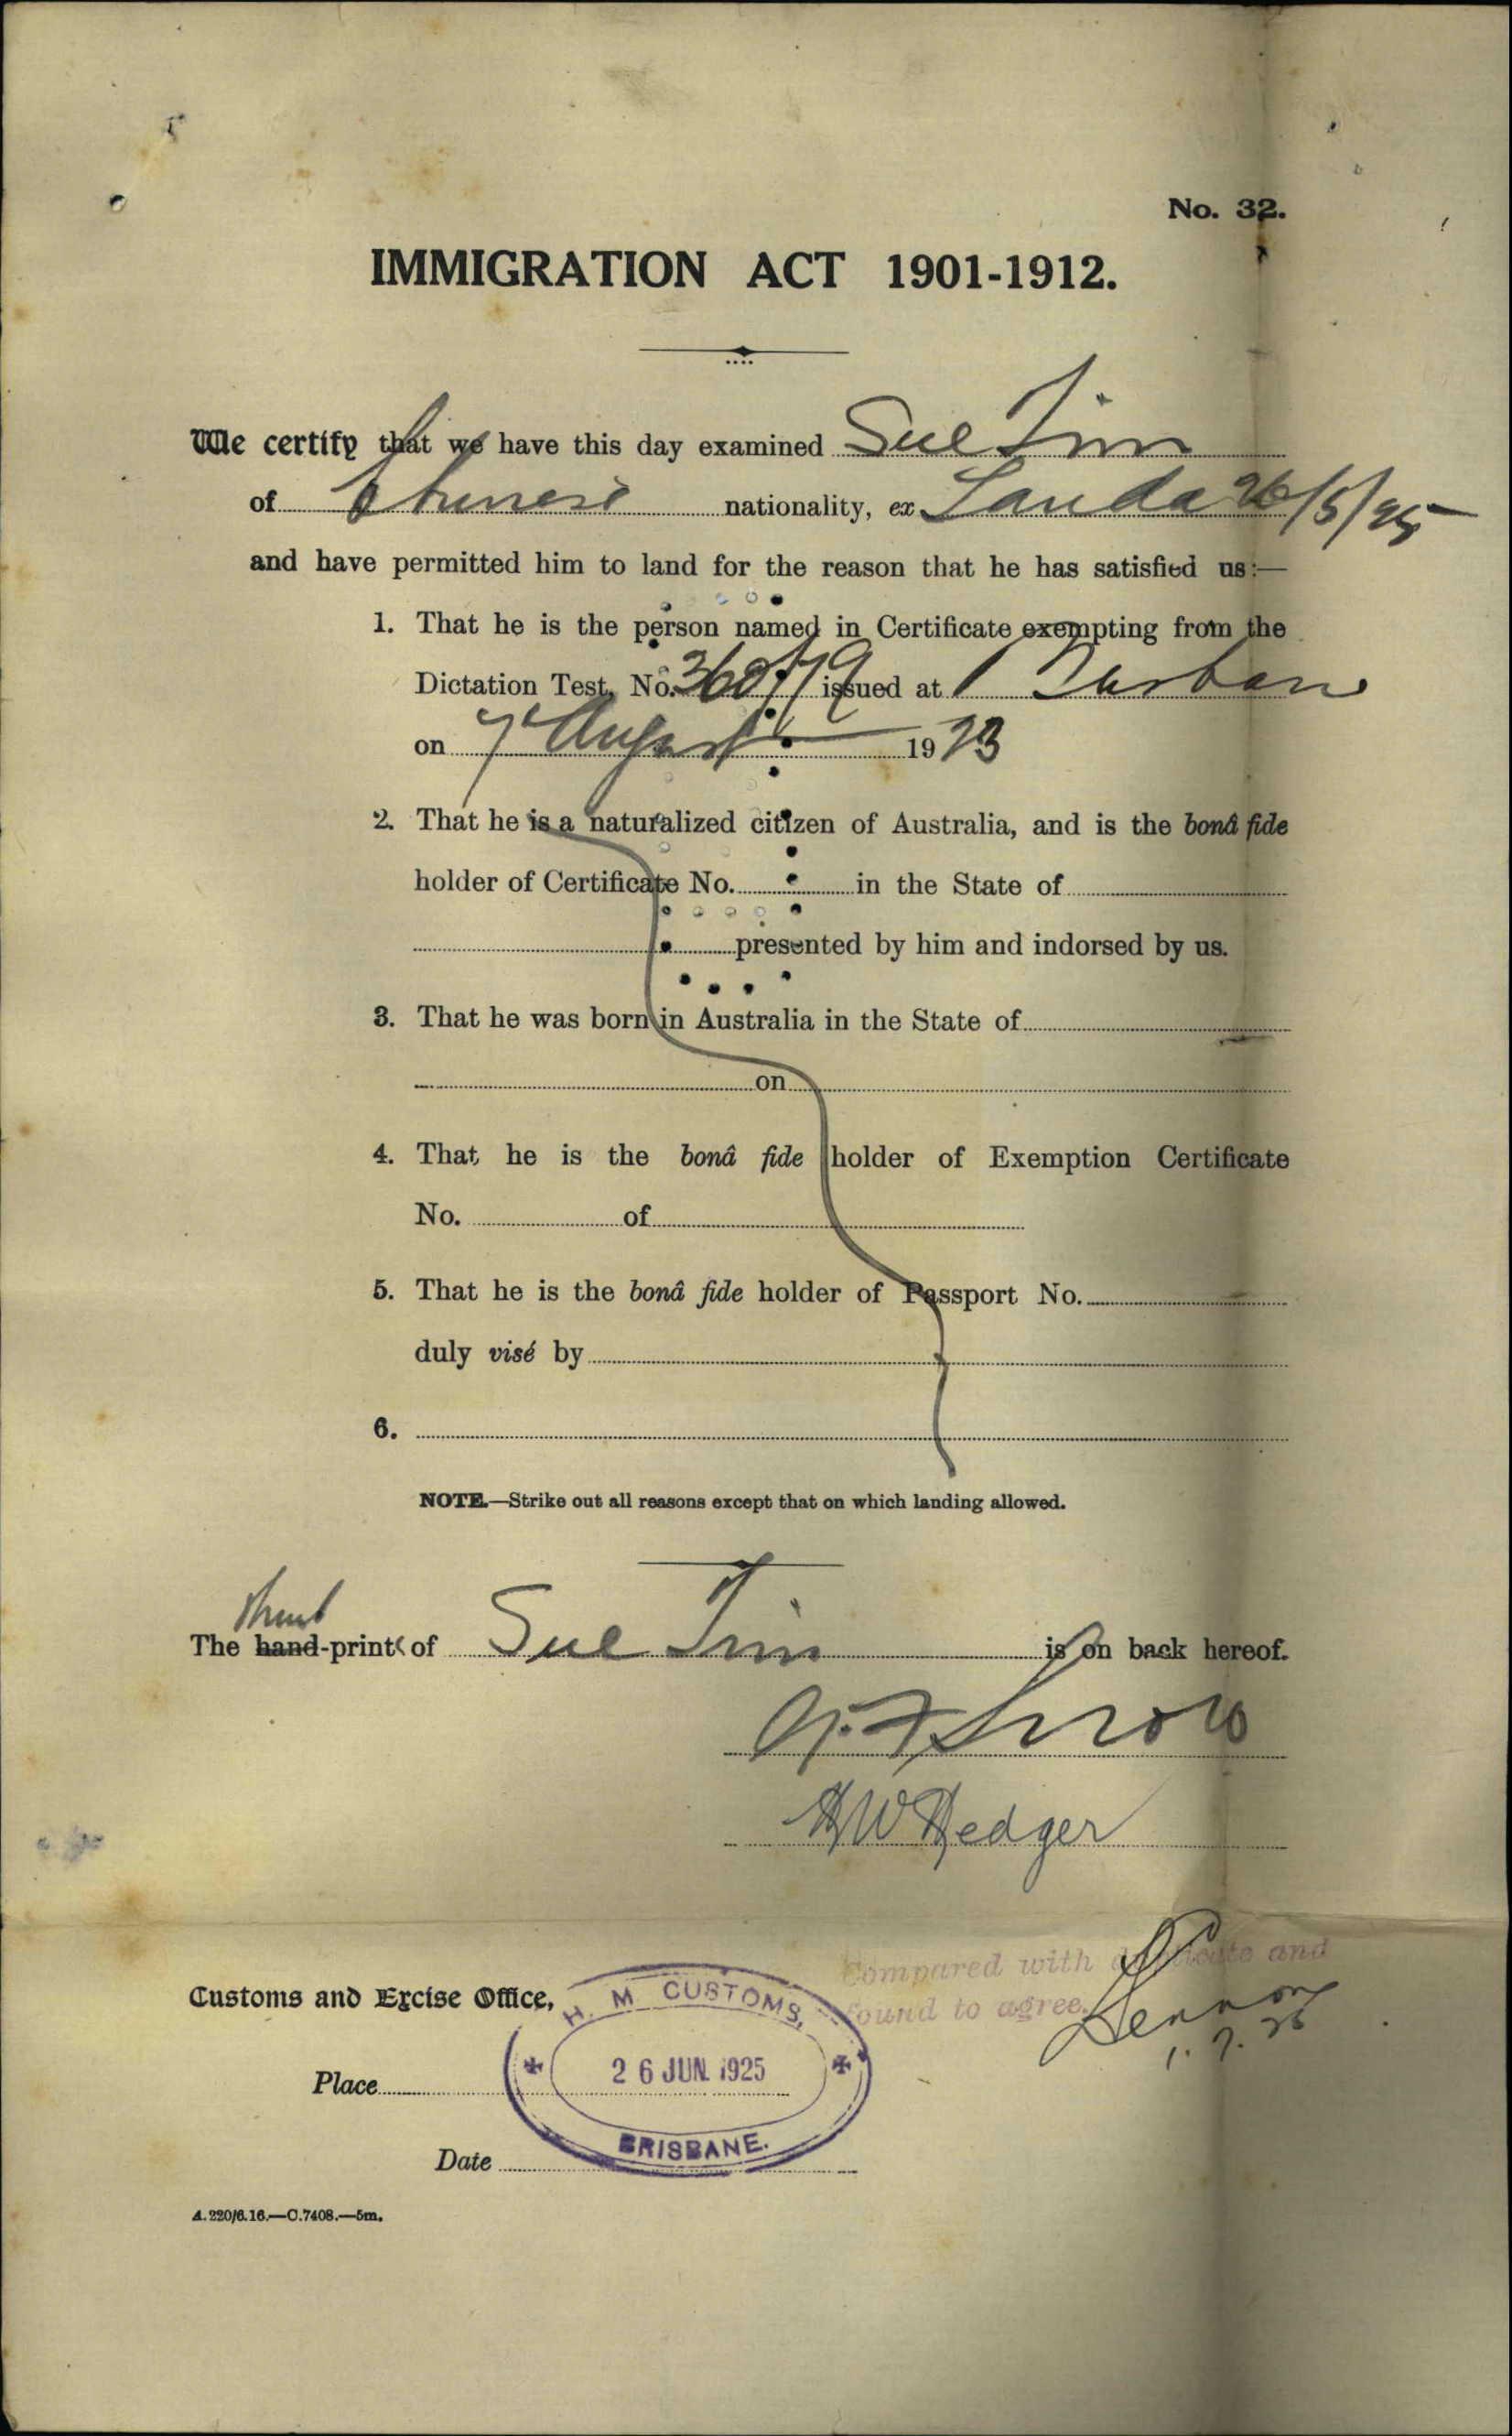 No. 32.
IMMIGRATION ACT 1901-1912.
We certify that we have this day examined Sue Tim
of Chinese nationality, ex Tanda 26/5/25
and have permitted him to land for the reason that he has satisfied us:—
1. That he is the person named in Certificate exempting from the
Dictation Test, No. issued at Durban
on 7 August 1923
2. That he is a naturalized citizen of Australia, and is the bonâ fide
holder of Certificate No. in the State of
presented by him and indorsed by us.
3. That he was born in Australia in the State of
on
4. That he is the bonâ fide holder of Exemption Certificate
No. of
5. That he is the bonâ fide holder of Passport No.
duly visé by
6.
NOTE.—Strike out all reasons except that on which landing allowed.
Thumb
The hand-prints of Sue Tim is on back hereof.
HW Hedger
Compared with duplicate and
found to agree.
Customs and Excise Office,
H. M. CUSTOMS,
Place
26 JUN. 1925
BRISBANE.
Date
A.220/6.16.—C.7408.—5m.